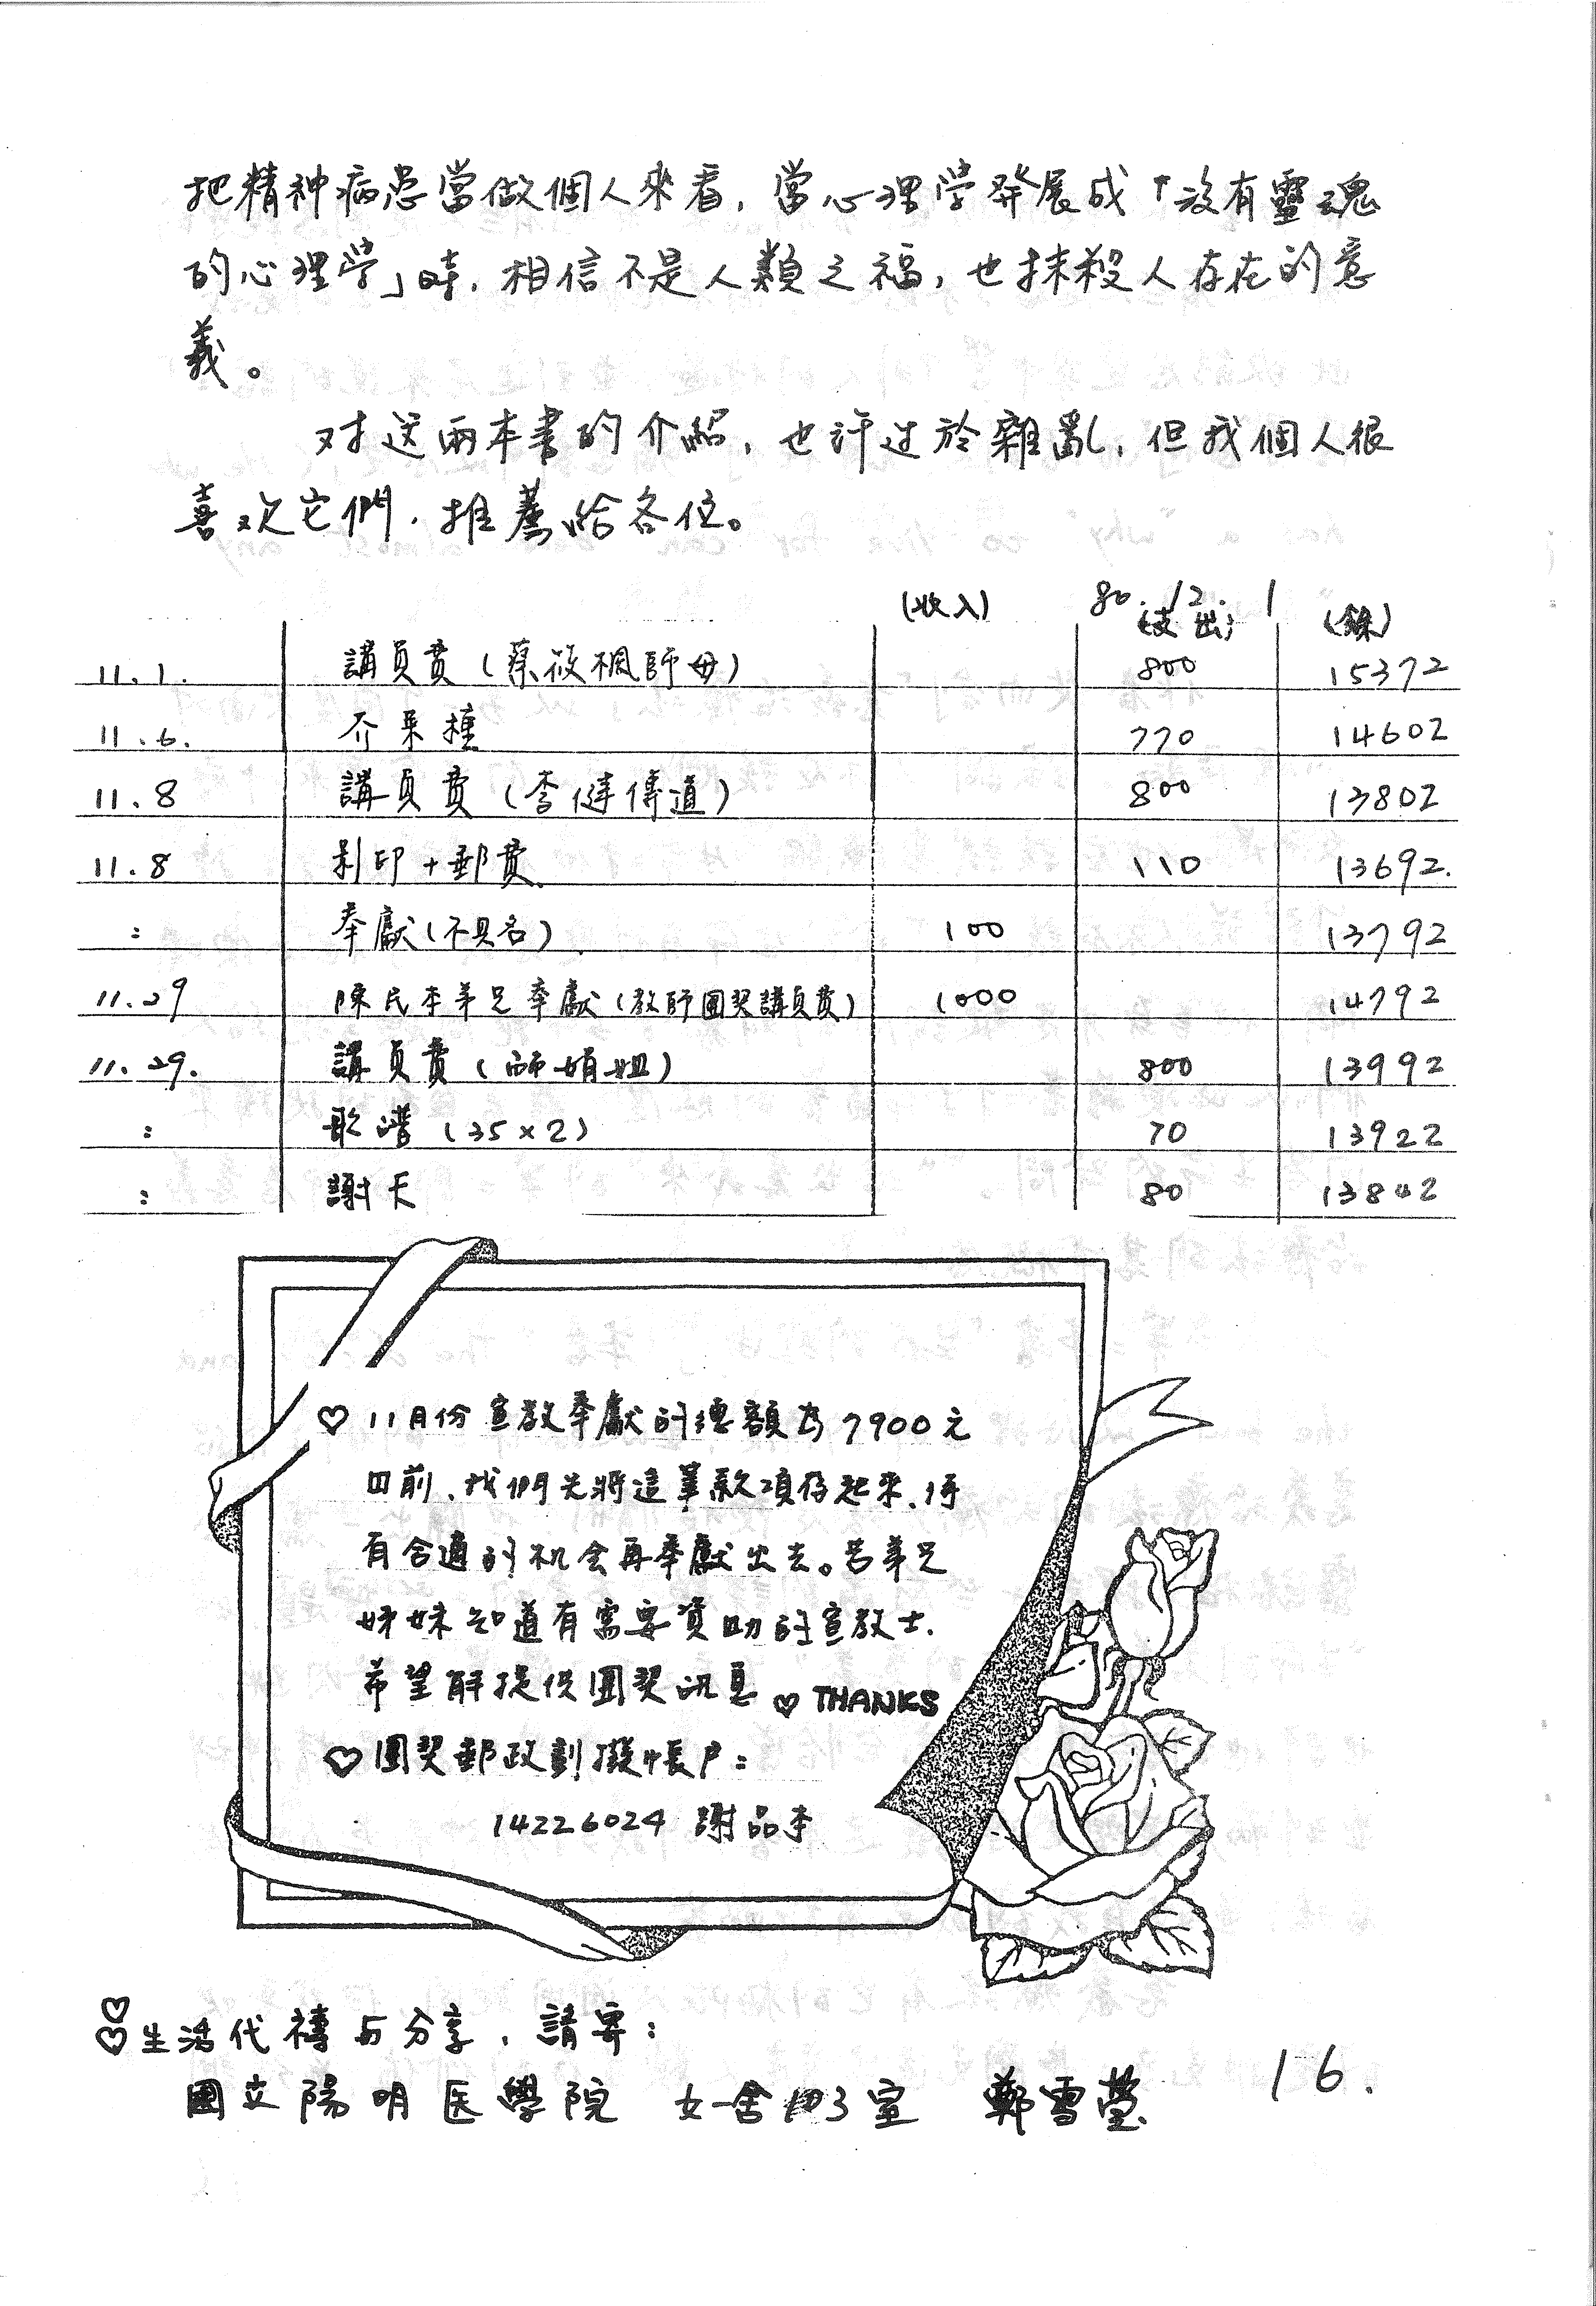 把精神病患當做個人來看，當心理学發展成「沒有靈魂
的心理学」時，相信不是人類之福，也抹殺人存在的意
義。
对这兩本書的介紹，也許过於雜亂，但我個人很
喜欢它們，推薦給各位。
80.12.1
(收入) (支出) (餘)
11.1. 講員費（蔡筱楓師母） 800 15372
11.6. 770 14602
11.8 講員費（李健傳道） 800 13802
11.8 影印+郵費 110 13692.
： 奉獻（不具名） 100 13792
11.29 陳民本弟兄奉獻（教師團契講員費） 1000 14792
11.29. 講員費（師娟姐） 800 13992
： 歌譜（35×2） 70 13922
： 謝卡 80 13842
♡ 11月份宣教奉獻的總額为7900元
目前，我們先將這筆款項存起來，待
有合適的机会再奉獻出去。若弟兄
姊妹知道有需要資助的宣教士，
希望能提供團契訊息 ♡ THANKS
♡ 團契郵政劃撥帳戶：
14226024 謝品李
♡♡生活代禱与分享，請寄：
國立陽明医學院 女一舍103室 鄭雪瑩
16.